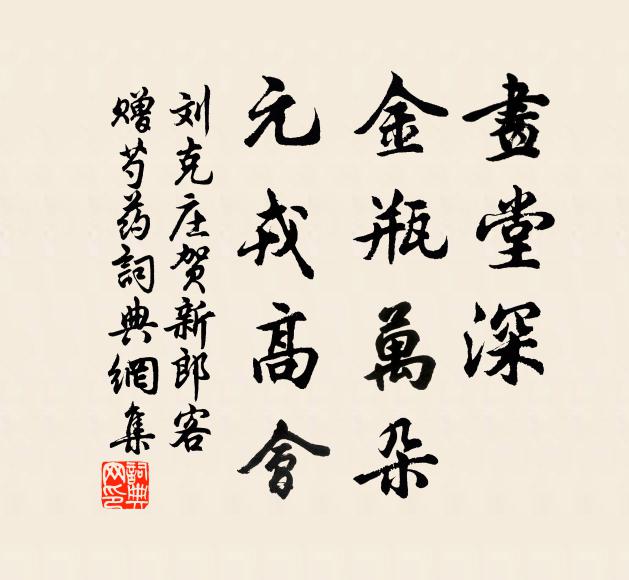 畫堂深
金瓶萬朵
元戎高會
刘克庄贺新郎客
赠芍药詞典網集
詞典
网印